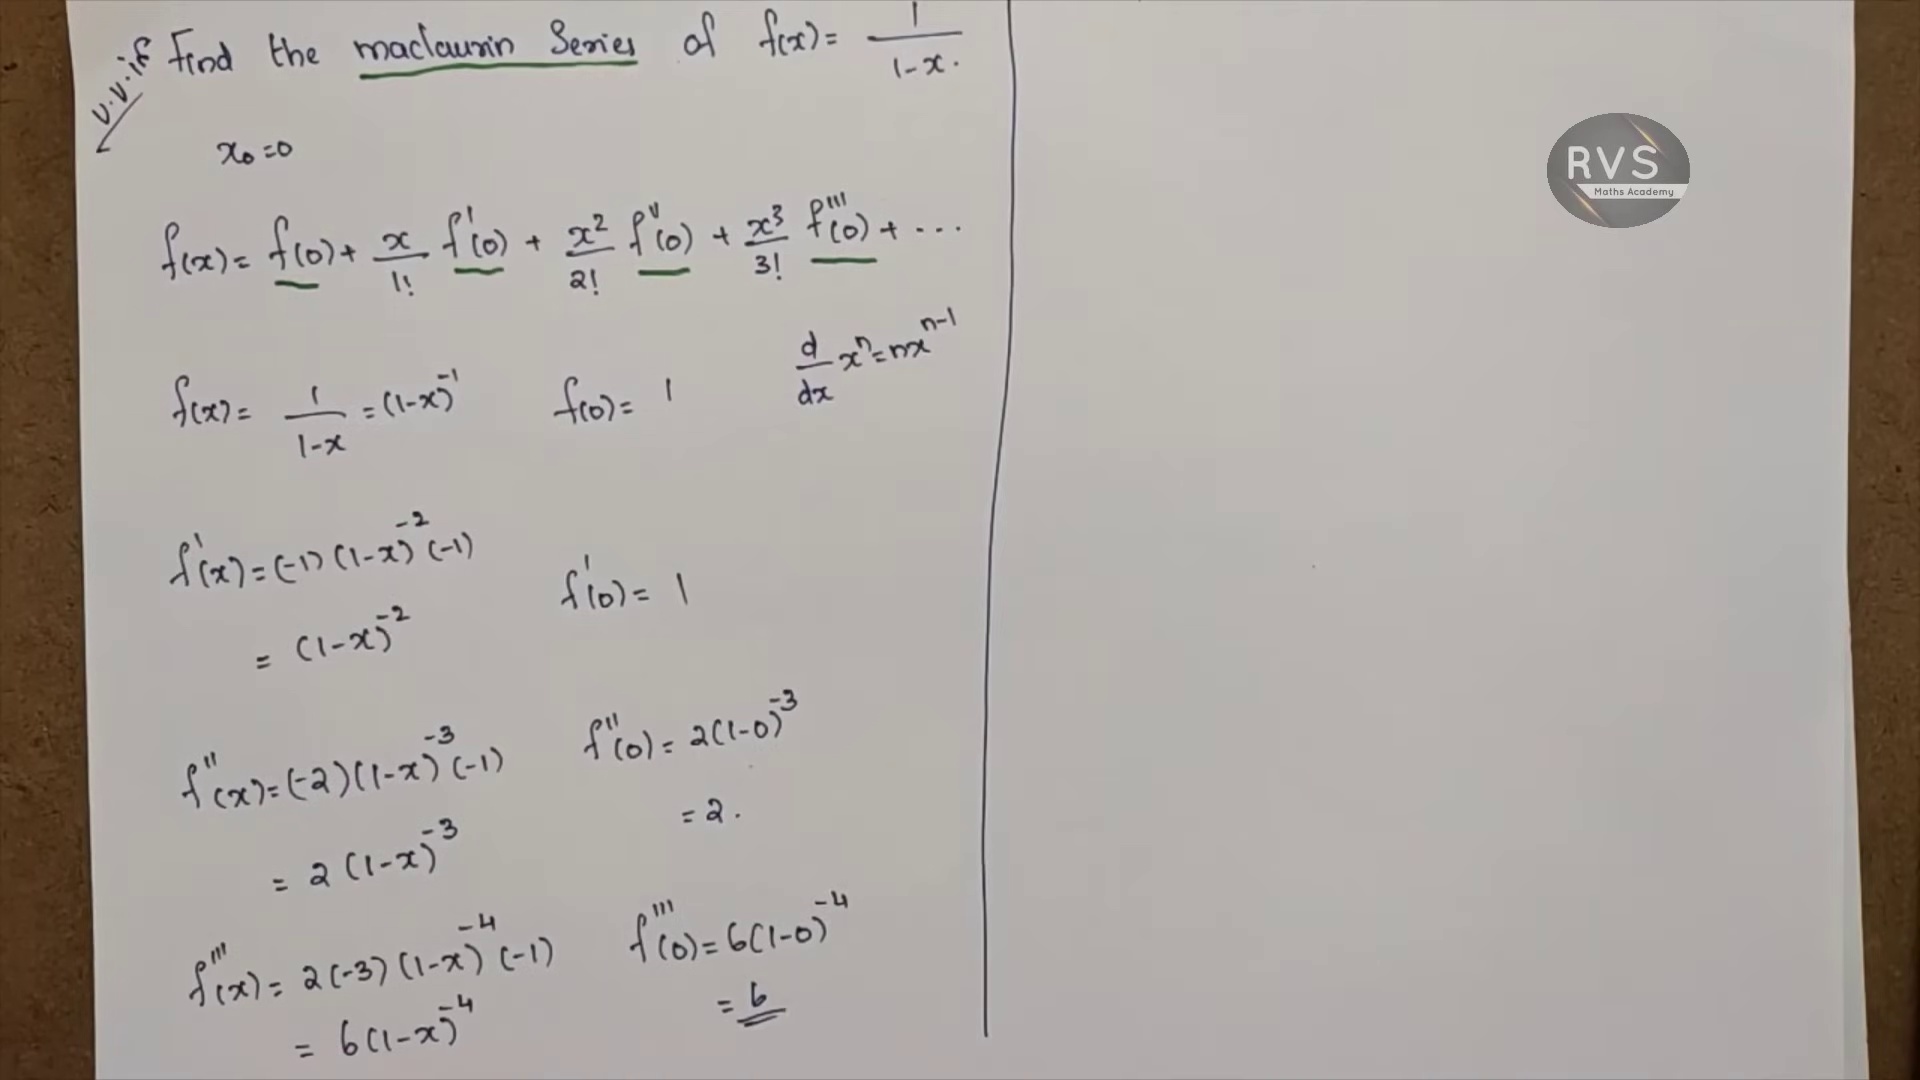 v.v.if Find the maclaurin Series of f(x) = 1/(1-x).
x₀ = 0
f(x) = f(0) + x/1! f'(0) + x²/2! f''(0) + x³/3! f'''(0) + ...
d/dx xⁿ = nxⁿ⁻¹
f(x) = 1/(1-x) = (1-x)⁻¹ f(0) = 1
f'(x) = (-1)(1-x)⁻²(-1)
f'(0) = 1
= (1-x)⁻²
f''(x) = (-2)(1-x)⁻³(-1) f''(0) = 2(1-0)⁻³
= 2.
= 2(1-x)⁻³
f'''(x) = 2(-3)(1-x)⁻⁴(-1) f'''(0) = 6(1-0)⁻⁴
= 6
= 6(1-x)⁻⁴
RVS
Maths Academy